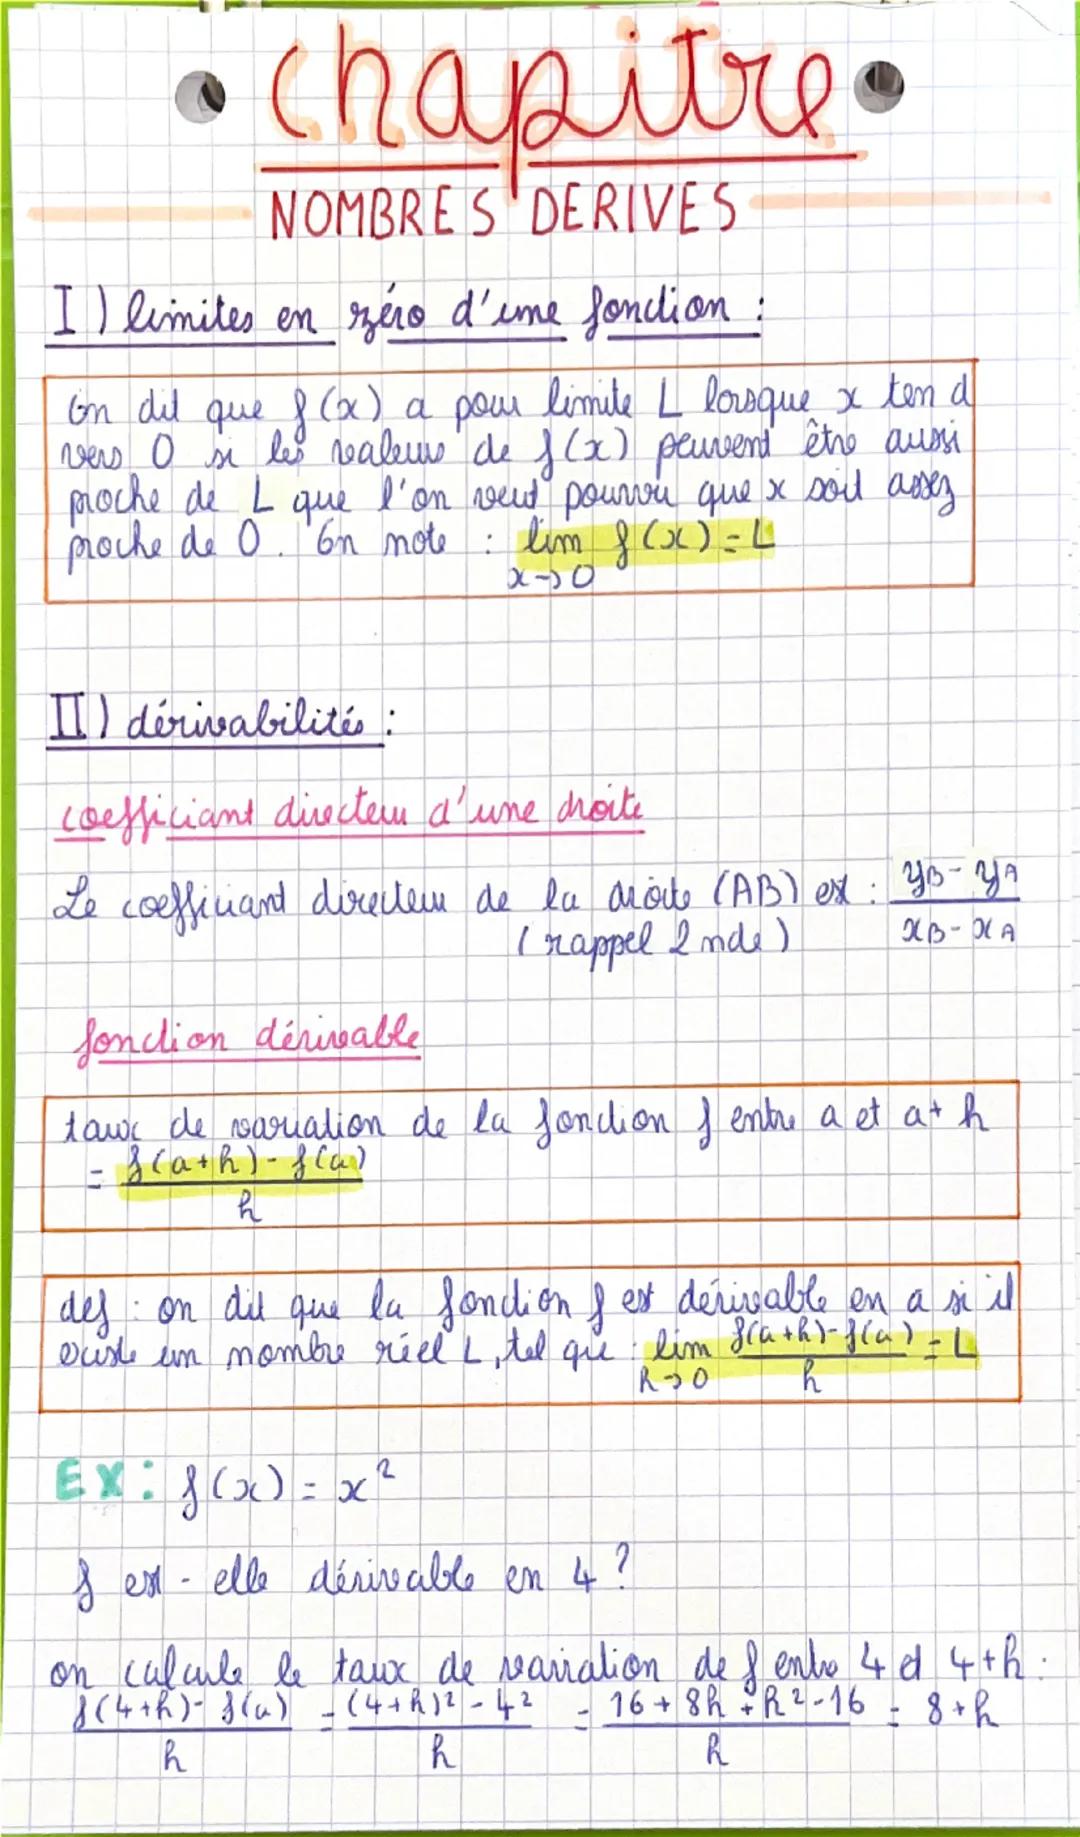 chapitre
NOMBRES DERIVES
I) limites en zéro d'une fonction :
On dit que f(x) a pour limite L lorsque x tend
vers 0 si les valeurs de f(x) peuvent être aussi
proche de L que l'on veut pourvu que x soit assez
proche de 0. On note : lim f(x) = L
x→0
II) dérivabilités :
coefficiant directeur d'une droite
Le coefficiant directeur de la droite (AB) est : yB - yA
(rappel 2nde) xB - xA
fonction dérivable
taux de variation de la fonction f entre a et a+h
= f(a+h) - f(a)
h
def : on dit que la fonction f est dérivable en a si il
existe un nombre réel L, tel que : lim f(a+h)-f(a) = L
h→0 h
EX : f(x) = x²
f est-elle dérivable en 4 ?
on calcule le taux de variation de f entre 4 et 4+h :
f(4+h)- f(a) = (4+h)² - 4² = 16 + 8h + h² - 16 = 8+h
h h h